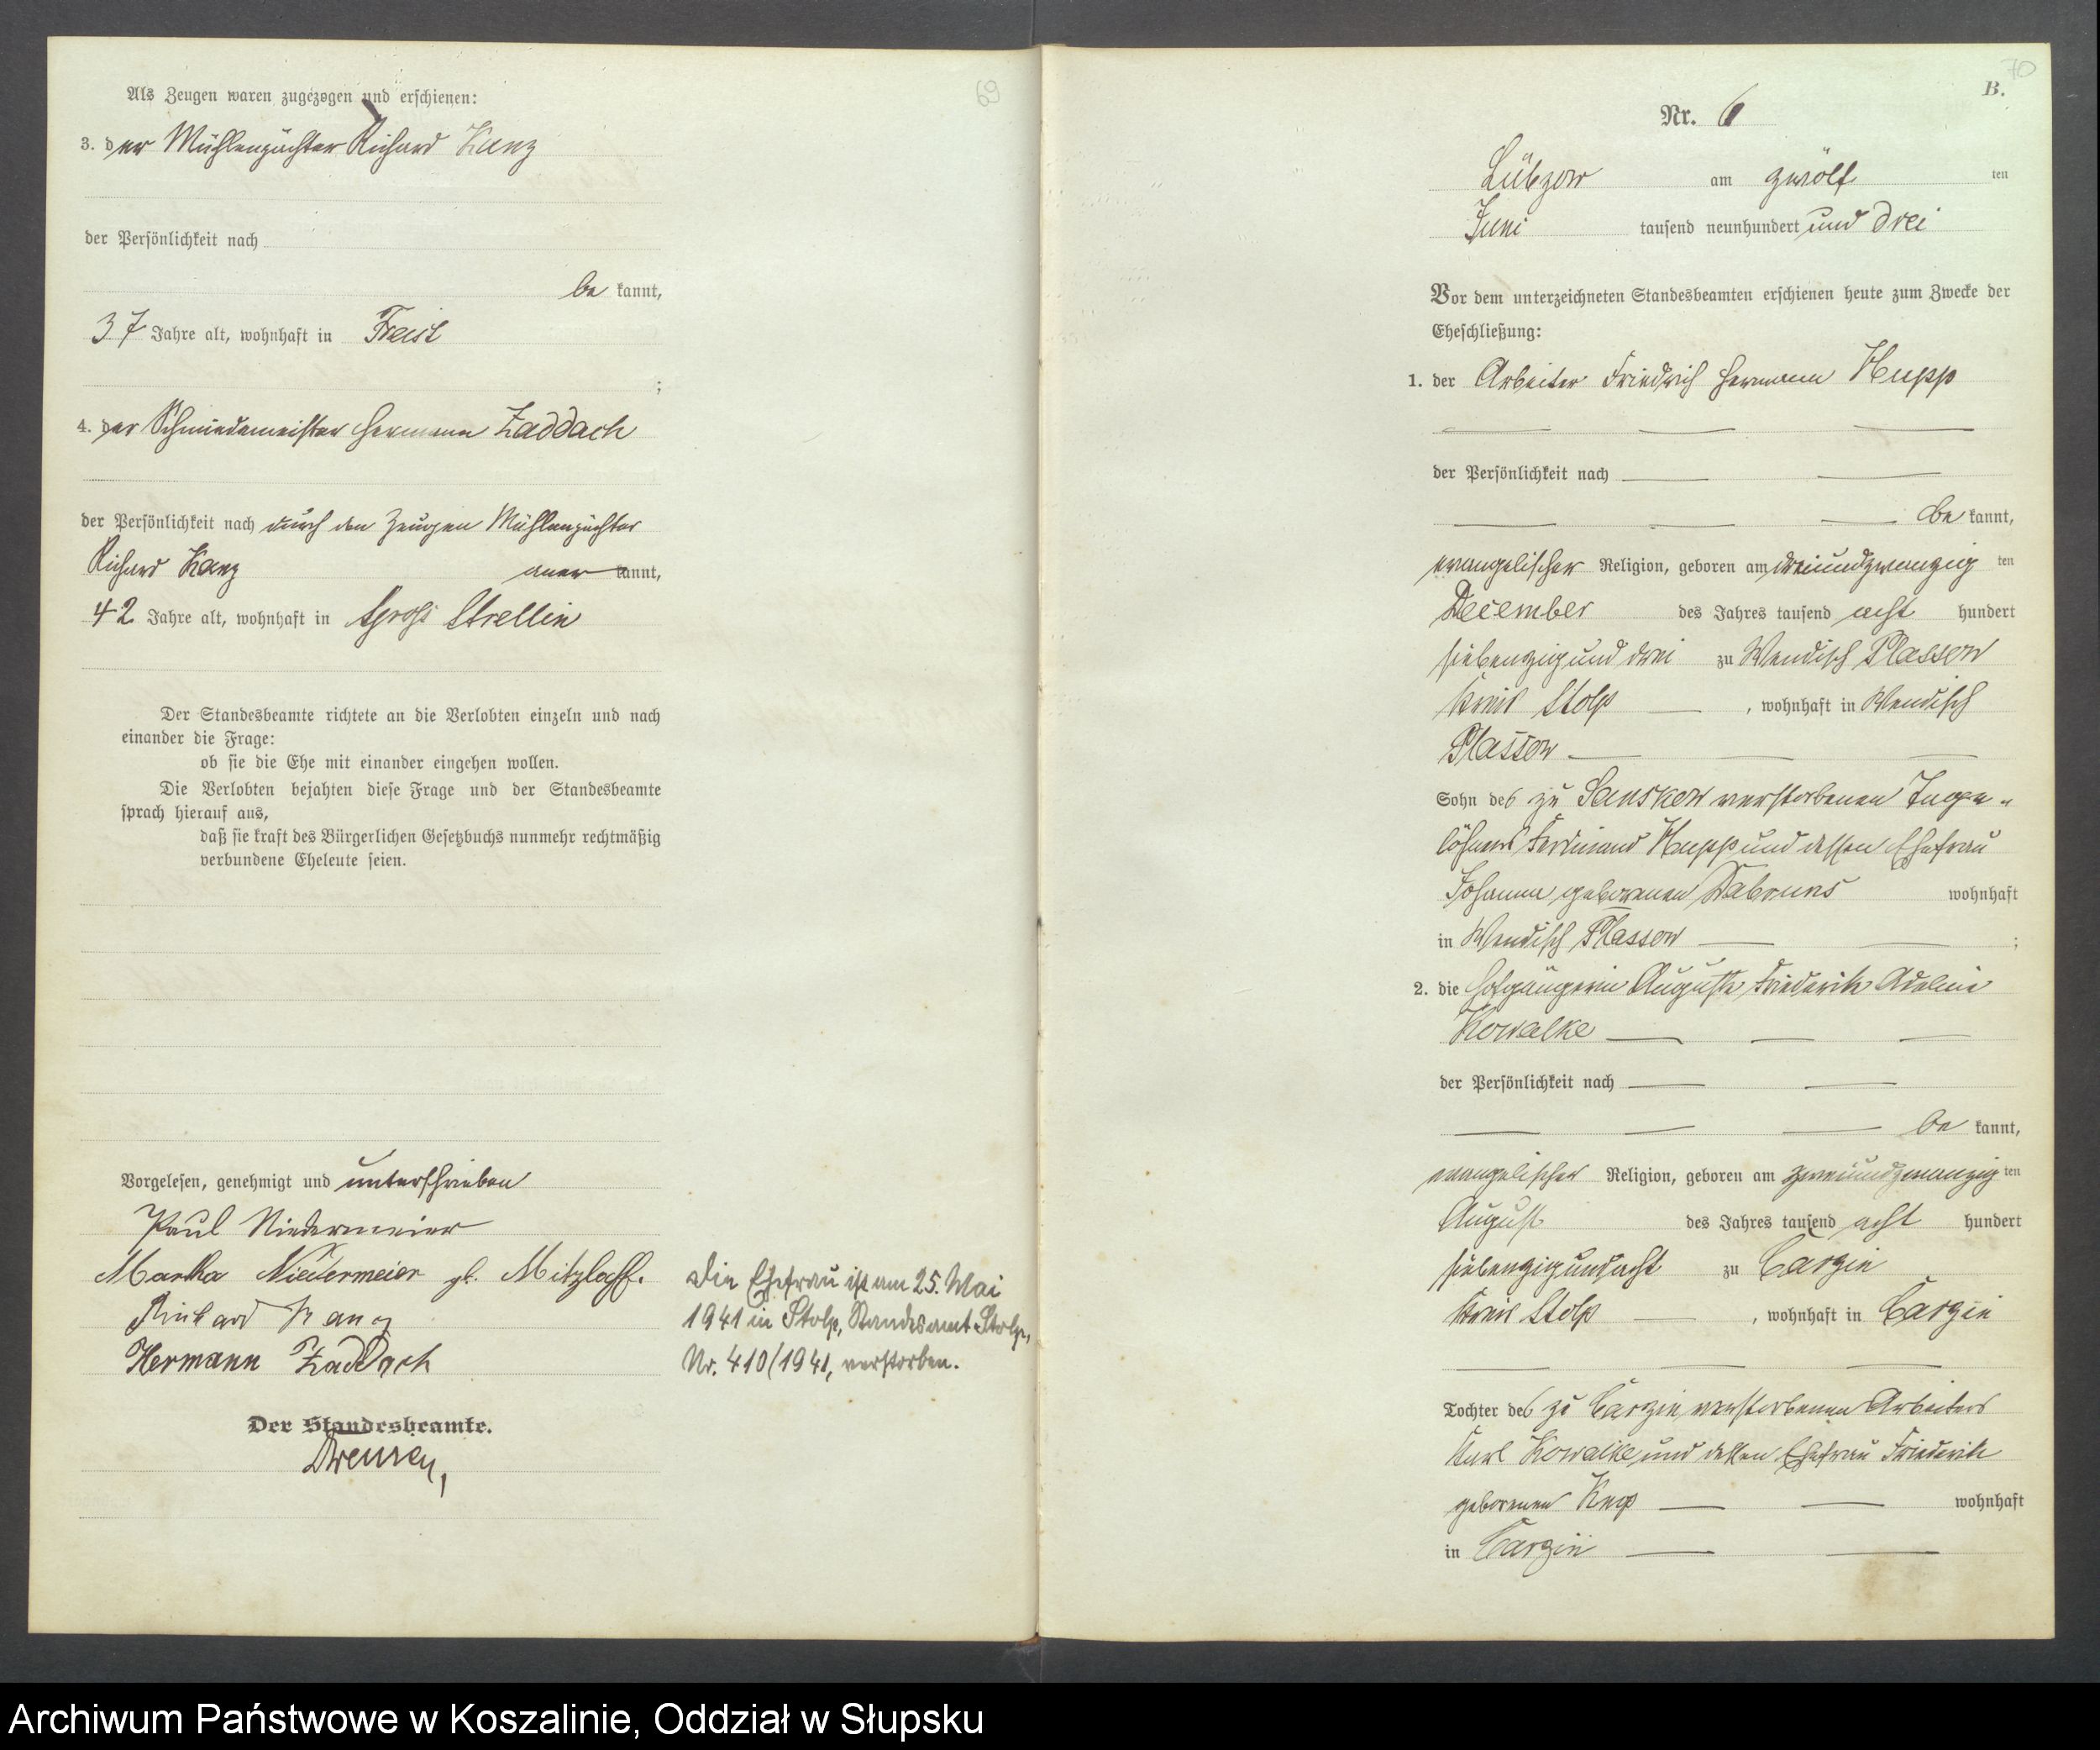 69
Als Zeugen waren zugezogen und erschienen:
3. der Mühlenpächter Richard Kanz
der Persönlichkeit nach
be kannt,
37 Jahre alt, wohnhaft in Freist
;
4. der Schmiedemeister Hermann Zaddach
der Persönlichkeit nach durch den Zeugen Mühlenpächter
Richard Kanz aner kannt,
42 Jahre alt, wohnhaft in Gross Strellin
Der Standesbeamte richtete an die Verlobten einzeln und nach
einander die Frage:
ob sie die Ehe mit einander eingehen wollen.
Die Verlobten bejahten diese Frage und der Standesbeamte
sprach hierauf aus,
daß sie kraft des Bürgerlichen Gesetzbuchs nunmehr rechtmäßig
verbundene Eheleute seien.
Vorgelesen, genehmigt und unterschrieben
Paul Niedermeier
Martha Niedermeier gb. Mitzlaff.
Richard Kanz
Hermann Zaddach
Der Standesbeamte.
Die Ehefrau ist am 25. Mai
1941 in Stolp, Standesamt Stolp,
Nr. 410/1941, verstorben.
70
B.
Nr. 6
Lübzow am zwölf ten
Juni tausend neunhundert und drei
Vor dem unterzeichneten Standesbeamten erschienen heute zum Zwecke der
Eheschließung:
1. der Arbeiter Friedrich Hermann Hupp
der Persönlichkeit nach
be kannt,
evangelischer Religion, geboren am dreiundzwanzig ten
December des Jahres tausend acht hundert
siebenzig und drei zu Wendisch Plassow
Kreis Stolp , wohnhaft in Wendisch
Plassow
Sohn des zu Sanskow verstorbenen Tage-
löhners Ferdinand Hupp und dessen Ehefrau
Johanna geborenen Dabruns wohnhaft
in Wendisch Plassow ;
2. die Hofgängerin Auguste Friederike Adeline
Kowalke
der Persönlichkeit nach
be kannt,
evangelischer Religion, geboren am zweiundzwanzig ten
August des Jahres tausend acht hundert
siebenzig und acht zu Carzin
Kreis Stolp , wohnhaft in Carzin
Tochter des zu Carzin verstorbenen Arbeiters
Karl Kowalke und dessen Ehefrau Friederike
geborenen wohnhaft
in Carzin
Archiwum Państwowe w Koszalinie, Oddział w Słupsku